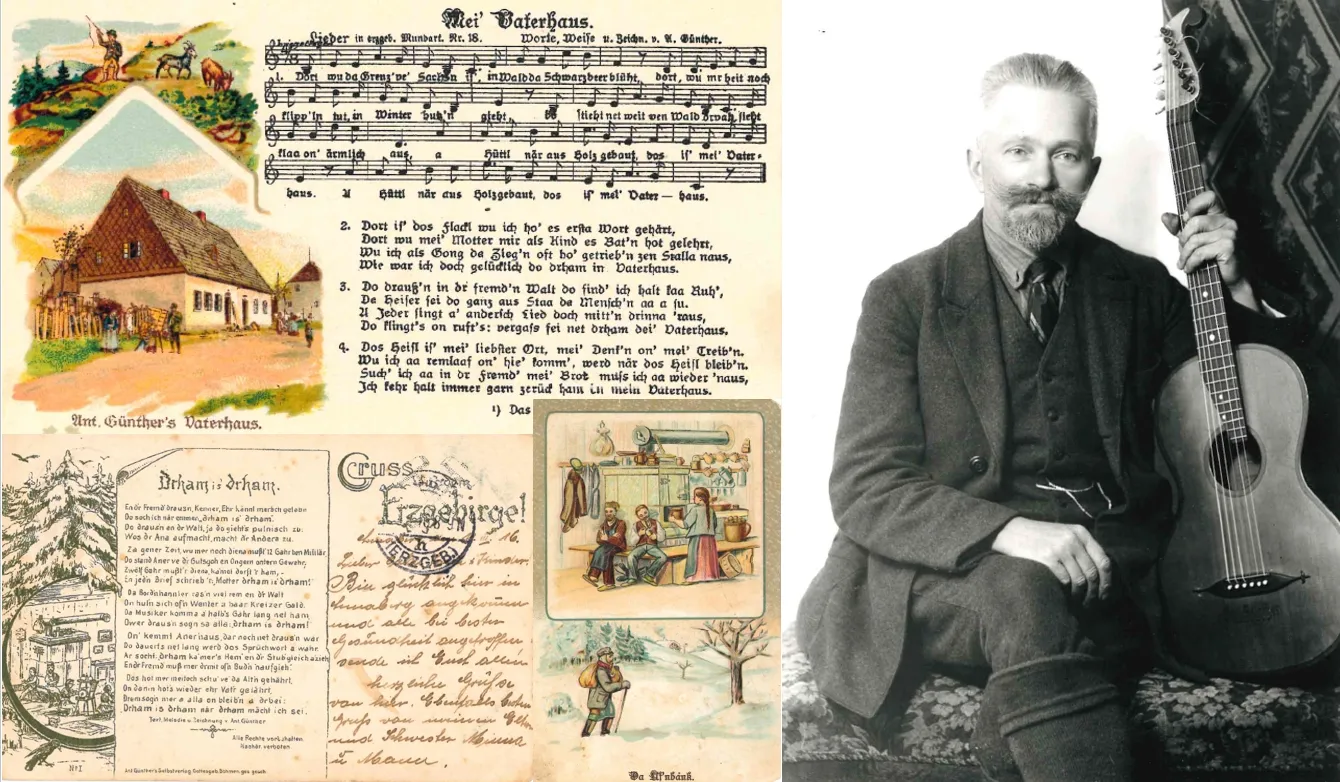 Mei' Vaterhaus.
Lieder in erzgeb. Mundart. Nr. 18. Worte, Weise u. Zeichn. v. A. Günther.
1. Dort wu da Grenz've' Sachsn is', in Waldda Schwarzbeer blüht, dort, wu mr heit noch
klipp'ln tut, in Winter hutz'n gieht, stieht net weit ven Wald drvah, sieht
klaa on' ärmlich aus, a Hüttl när aus Holz gebaut, dos is' mei' Vater-
haus. A Hüttl när aus Holzgebaut, dos is' mei' Vater — haus.
2. Dort is' dos Flackl wu ich ho' es erfta Wort gehärt,
Dort wu mei' Motter mir als Kind es Bat'n hot gelehrt,
Wu ich als Gong da Zieg'n oft ho' getrieb'n zen Stalla naus,
Wie war ich doch gelücklich do drham in Vaterhaus.
3. Do drauß'n in dr fremd'n Walt do find' ich halt kaa Ruh',
De Heiser sei do ganz aus Staa de Mensch'n aa a su.
A Jeder singt a' anderfch Lied doch mitt'n drinna 'raus,
Do klingt's on ruft's: vergass sei net drham dei' Vaterhaus.
4. Dos Heisl is' mei' liebster Ort, mei' Denk'n on' mei' Treib'n.
Wu ich aa remlaaf on' hie' komm', werd när dos Heisl bleib'n.
Such' ich aa in dr Fremd' mei' Brot muss ich aa wieder 'naus,
Ich kehr halt immer garn zerück ham in mein Vaterhaus.
1) Das
Ant. Günther's Vaterhaus.
Drham is' drham.
En dr Fremd' drausn, Kenner, Ehr kännt merbch geloon
Do noch ich när emmer, „drham is' drham".
Do drausn en dr Walt, ja do gieht's pulnisch zu.
Wos dr Ana aufmacht, macht dr Andera zu.
Za gener Zeit, wu mer noch diena mußt' 12 Gahr ben Militär
Do stand Aner ve dr Gutsgoh en Ungern ontern Gewahr,
Zwölf Gahr mußt'r diena, kännt dorft'r ham, -
En jedn Brief schrieb 'r'n, Motter drham is drham!
Da Bordnhannler ras'n viel rem en dr Walt
On huln sich ofn Wenter a baar Kreizer Gald.
Da Musiker komma a halb's Gahr lang net ham
Ower drausn sogn sa alla: drham is drham!
On' kemmt Aner naus, dar noch net drausn war
Do dauerts net lang werd dos Sprüchwort a wahr.
Ar socht: drham ka mer's Ham' en dr Stub gleich azieh
En dr Fremd muß mer drmit ofn Budn 'naufgieh'.
Dos hot mer meitoch schu' ve da Altn gehährt,
On dann hots wieder ehr Votr gelährt,
Dromsogn mer a alla on bleibn a drbei:
Drham is drham när drham mächt ich sei.
Text, Melodie u. Zeichnung v. Ant. Günther
Alle Rechte vorbehalten.
Nachdr. verboten.
Nr. 1
Ant Günther's Selbstverlag Gottesgab Böhmen. ges. gesch.
Gruss
aus dem
Erzgebirge!
(ERZGEB.)
16.
Lieber Kinder.
Bin glücklich hier in
Annaberg angekommen
und alle bei bester
Gesundheit angetroffen
sende ich Euch allen
herzliche Grüße
von hier. Ebenfalls beten
Gruß von meinen Eltern
und Schwester Minna
u Mann.
Da Uf'nbänk.